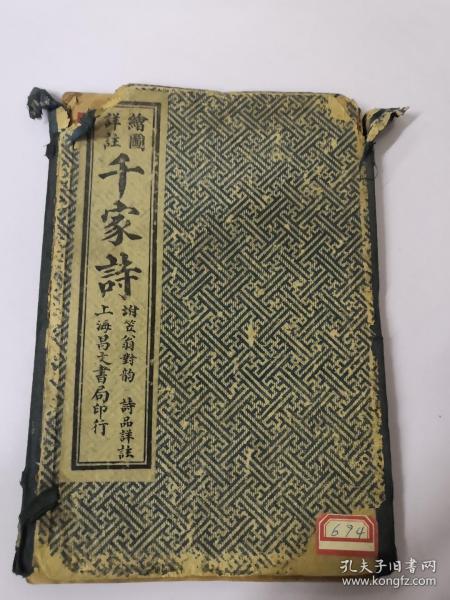 繪圖
詳註
千家詩
附笠翁對韵 詩品詳註
上海昌文書局印行
694
孔夫子旧书网
www.kongfz.com